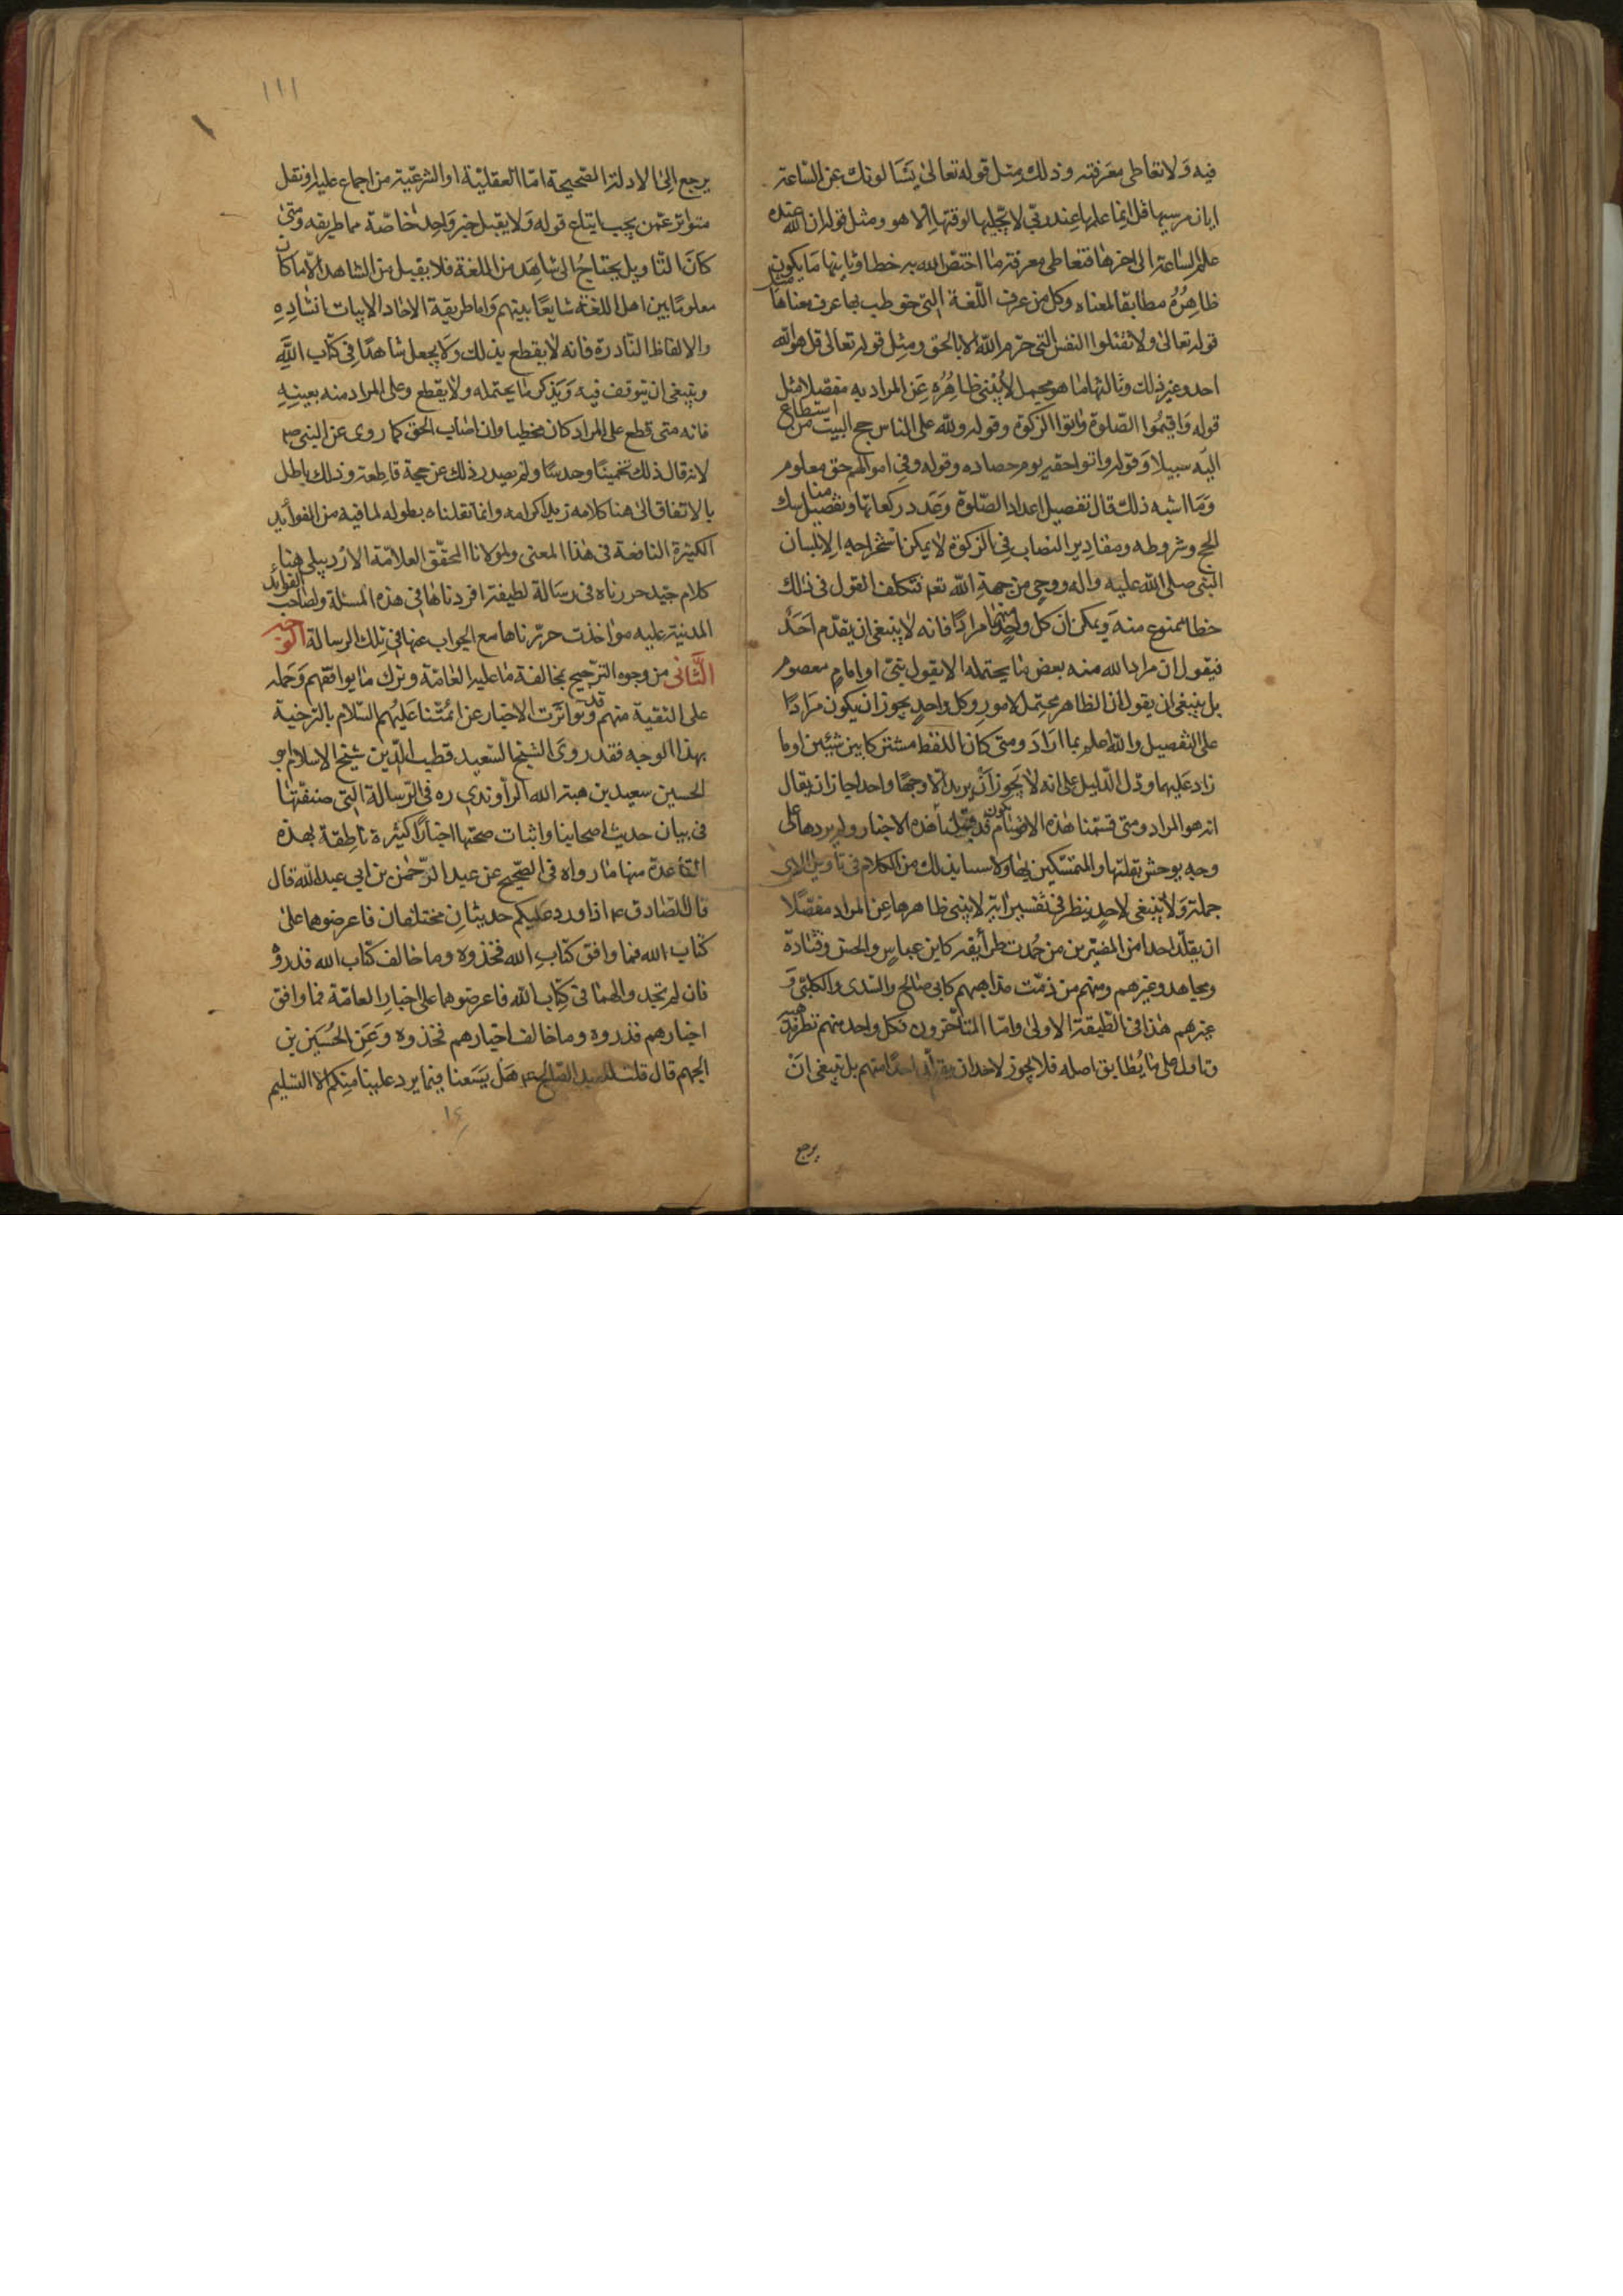 فيه ولا تعاطى معرفته وذلك مثل قوله تعالى يسألونك عن الساعة
ايان مرسيها قل انما علمها عند ربى لا يجليها لوقتها الا هو ومثل قوله ان الله عنده
علم الساعة الى اخرها فتعاطى معرفة ما اختص الله به خطا وثانيها ما يكون
ظاهره مطابقا لمعناه وكل من عرف اللغة التى خوطب بها عرف معناها مثل
قوله تعالى ولا تقتلوا النفس التى حرم الله الا بالحق ومثل قوله تعالى قل هو الله
احد وغير ذلك وثالثها ما هو مجمل لا ينبئ ظاهره عن المراد به مفصلا مثل
قوله واقيموا الصلوة واتوا الزكوة وقوله ولله على الناس حج البيت من استطاع
اليه سبيلا وقوله واتوا حقه يوم حصاده وقوله وفى اموالهم حق معلوم
وما اشبه ذلك قال تفصيل اعداد الصلوة وعدد ركعاتها وتفصيل مناسك
الحج وشروطه ومقادير النصاب فى الزكوة لا يمكن استخراجه الا بلسان
النبى صلى الله عليه واله ووحى من جهة الله تعم فتكلف القول فى ذلك
خطا ممنوع منه ويمكن ان كل واحد منهما مرادا فانه لا ينبغى ان يقدم احد
فيقول ان مراد الله منه بعض ما يحتمله الا بقول نبى او امام معصوم
بل ينبغى ان يقول ان الظاهر محتمل لامور وكل واحد يجوز ان يكون مرادا
على التفصيل والله اعلم بما اراد ومتى كان اللفظ مشتركا بين شيئين او ما
زاد عليهما ودل الدليل على انه لا يجوز ان يريد الا وجها واحدا جاز ان يقال
انه هو المراد ومتى قسمنا هذه الاقسام نكون قد قبلنا هذه الاخبار ولم يردها على
وجه يوحش نقلتها والمتمسكين بها ولا بذلك من الكلام فى تاويل الاى
جملة ولا ينبغى لاحد ينظر فى تفسير اية لا ينبئ ظاهرها عن المراد مفصلا
ان يقلد احدا من المفسرين من حمدت طرايقه كابن عباس والحسن وقتادة
ومجاهد وغيرهم ومنهم من ذمت مذاهبهم كابى صالح والسدى والكلبى و
غيرهم هذا فى الطبقة الاولى واما المتأخرون فكل واحد منهم نصر مذهبه
وتاول على ما يطابق اصله فلا يجوز لاحد ان يقلد احدا منهم بل ينبغى ان
يرجع
١١١
يرجع الى الادلة الصحيحة اما العقلية او الشرعية من اجماع عليه او نقل
متواتر عمن يجب اتباع قوله ولا يقبل خبر واحد خاصة مما طريقه ومتى
كان التاويل يحتاج الى شاهد من اللغة فلا يقبل من الشاهد الا ما كان
معلوما بين اهل اللغة شايعا بينهم واما طريقة الاحاد الابيات
والالفاظ النادرة فانه لا يقطع بذلك ولا يجعل شاهدا فى كتاب الله
وينبغى ان يتوقف فيه ويذكر ما يحتمله ولا يقطع وعلى المراد منه بعينه
فانه متى قطع على المراد كان مخطيا وان اصاب الحق كما روى عن النبى صلم
لانه قال ذلك تخمينا وحدسا ولم يصدر ذلك عن حجة قاطعة وذلك باطل
بالاتفاق الى هنا كلامه زيد اكرامه وانما نقلناه بطوله لما فيه من الفوائد
الكثيرة النافعة فى هذا المعنى ولمولانا المحقق العلامة الاردبيلى هنا
كلام جيد حررناه فى رسالة لطيفة افردناها فى هذه المسئلة ولصاحب الفوائد
المدنية عليه مواخذت حررناها مع الجواب عنها فى تلك الرسالة الوجه
الثانى من وجوه الترجيح بمخالفة ما عليه العامة وترك ما يوافقهم وحمله
على التقية منهم وقد تواترت الاخبار عن ائمتنا عليهم السلام بالترجية
بهذا الوجه فقد روى الشيخ السعيد قطب الدين شيخ الاسلام ابو
الحسين سعيد بن هبة الله الراوندى ره فى الرسالة التى صنفتها
فى بيان حديث اصحابنا واثبات صحتها اخبارا كثيرة ناطقة بهذه
القاعدة منها ما رواه فى الصحيح عن عبد الرحمن بن ابى عبد الله قال
قال الصادق ع اذا ورد عليكم حديثان مختلفان فاعرضوهما على
كتاب الله فما وافق كتاب الله فخذوه وما خالف كتاب الله فذروه
فان لم تجدوا لهما فى كتاب الله فاعرضوهما على اخبار العامة فما وافق
اخبارهم فذروه وما خالف اخبارهم فخذوه وعن الحسين بن
الجهم قال قلت للعبد الصالح ع هل يسعنا فيما يرد علينا منكم الا التسليم